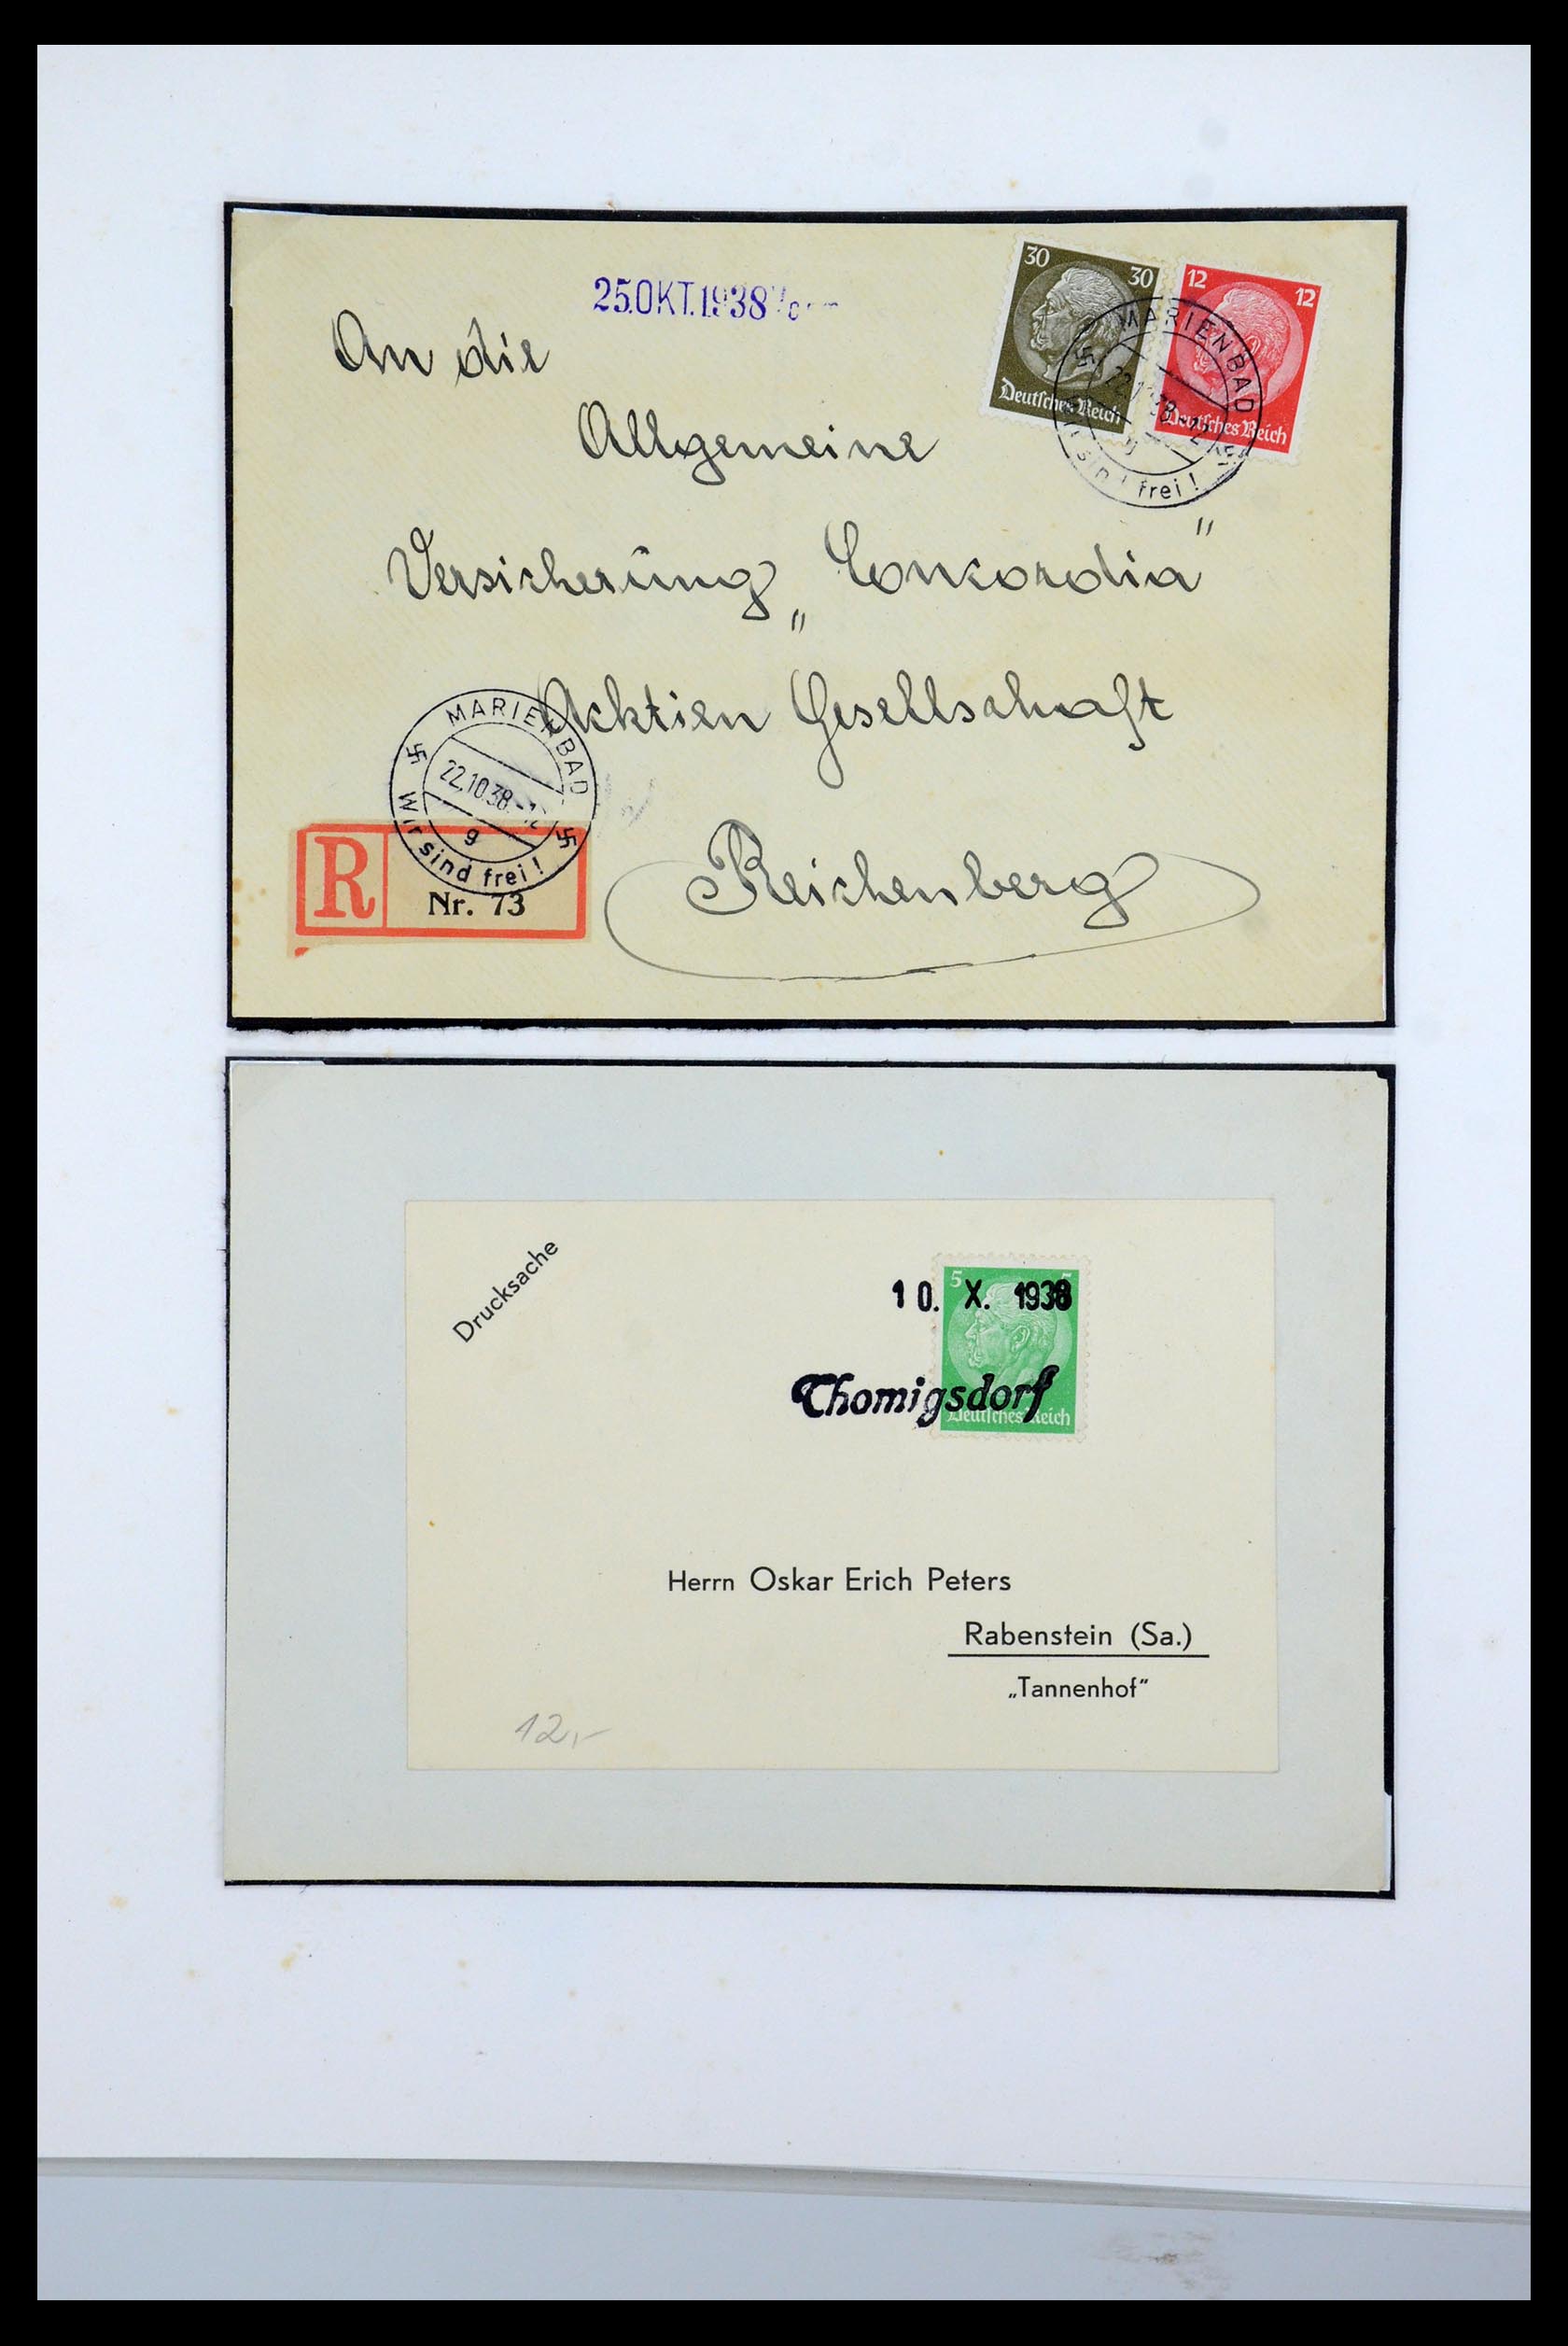 25.OKT.1938
30 30
Deutsches Reich
12 12
Deutsches Reich
MARIENBAD
22.1 38.-12
g
Wir sind frei!
An die
Allgemeine
Versicherung „Conkordia"
Acktien Gesellschaft
Reichenberg
MARIENBAD
22.10.38.-12
g
Wir sind frei!
R
Nr. 73
Drucksache
5 5
10. X. 1938
Thomigsdorf
Deutsches Reich
Herrn Oskar Erich Peters
Rabenstein (Sa.)
„Tannenhof"
12,-